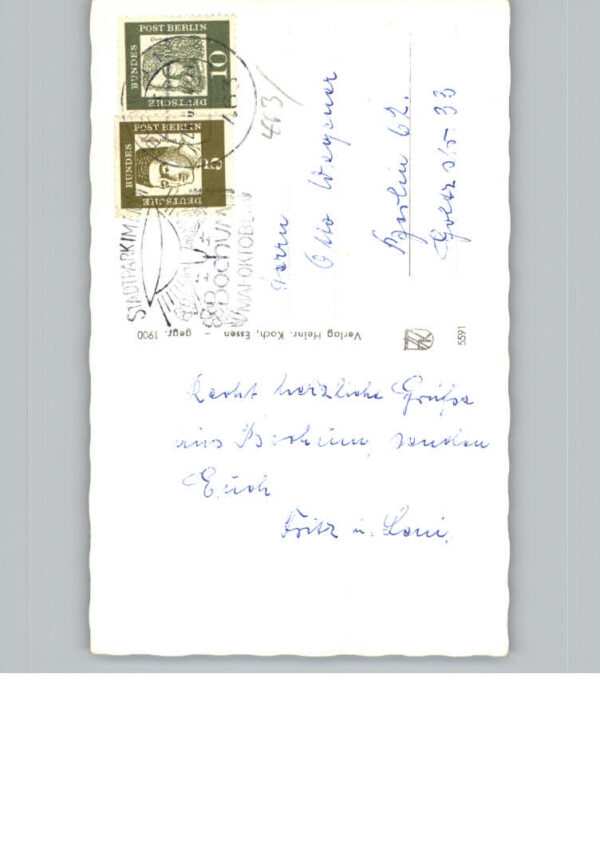 DEUTSCHE
BUNDES
POST BERLIN
10
DEUTSCHE
BUNDES
POST BERLIN
5
Bochum
463/
Herrn
Otto Wegener
Berlin 62.
Goltz str. 33
5591
Verlag Heinr. Koch, Essen - gegr. 1900
Recht herzliche Grüße
aus Bochum, senden
Euch
Fritz u.